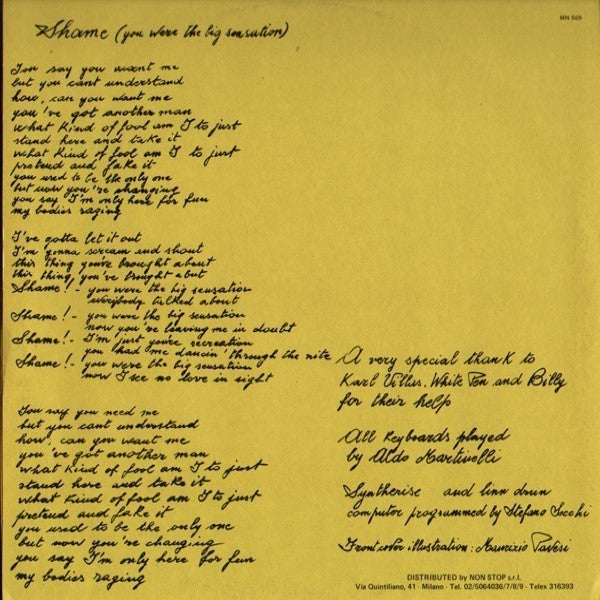 Shame (you were the big sensation)
MN 509
You say you want me
but you cant understand
how, can you want me
you've got another man
what kind of fool am I to just
stand here and take it
what kind of fool am I to just
pretend and fake it
you used to be the only one
but now you're changing
you say I'm only here for fun
my bodies raging
I've gotta let it out
I'm gonna scream and shout
this thing you've brought about
this thing, you've brought about
Shame! - you were the big sensation
everybody talked about
Shame! - you were the big sensation
now you're leaving me in doubt
Shame! - I'm just youre recreation
you had me dancin' through the nite
Shame! - you were the big sensation
now I see no love in sight
You say you need me
but you cant understand
how, can you want me
you've got another man
what kind of fool am I to just
stand here and take it
what kind of fool am I to just
pretend and fake it
you used to be the only one
but now you're changing
you say I'm only here for fun
my bodies raging
A very special thank to
Karl Villis, White Pen and Billy
for their help
All Keyboards played
by Aldo Martinelli
Syntherise and linn drun
computor programmed by Stefano Secchi
Front cover illustration: Maurizio Pavesi
DISTRIBUTED by NON STOP s.r.l.
Via Quintiliano, 41 - Milano - Tel. 02/5064036/7/8/9 - Telex 316393